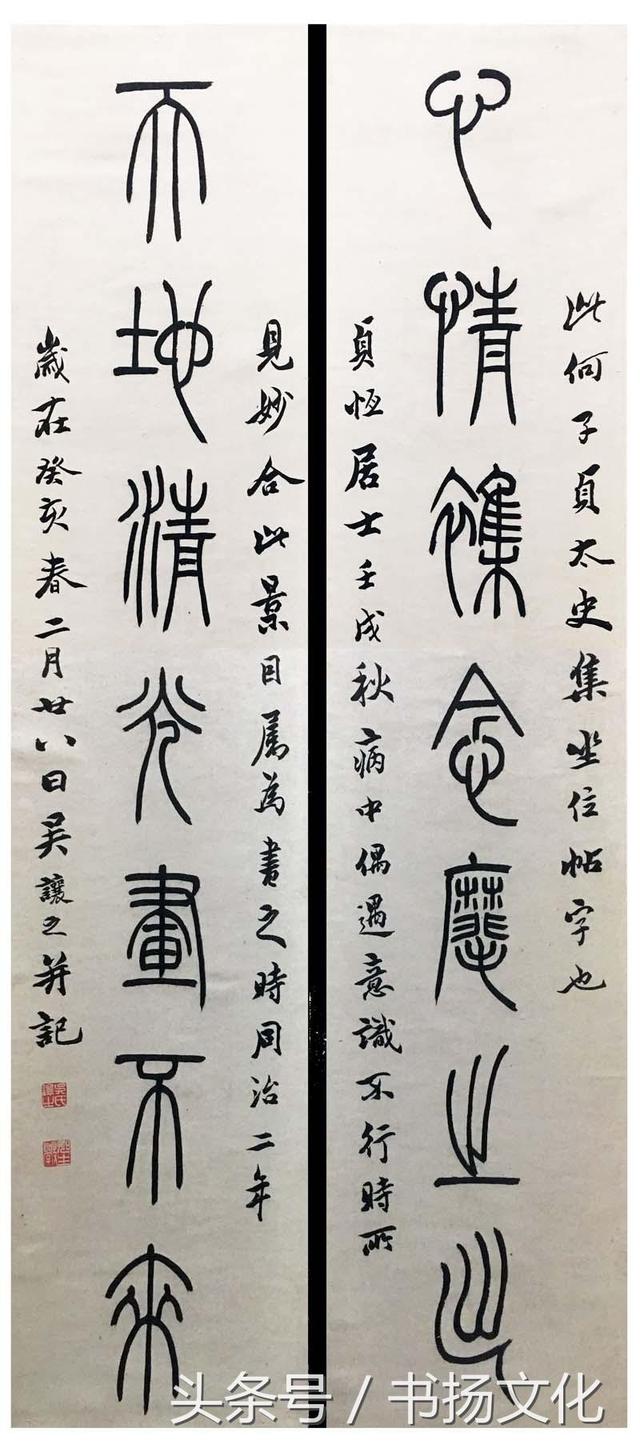 此何子貞太史集坐位帖字也
心情雜念麾之出
貞恆居士壬戌秋病中偶遇意識不行時所
見妙合此景囙屬為書之時同治二年
天地清光畫不來
歲在癸亥春二月廿八日吳讓之并記
头条号 / 书扬文化